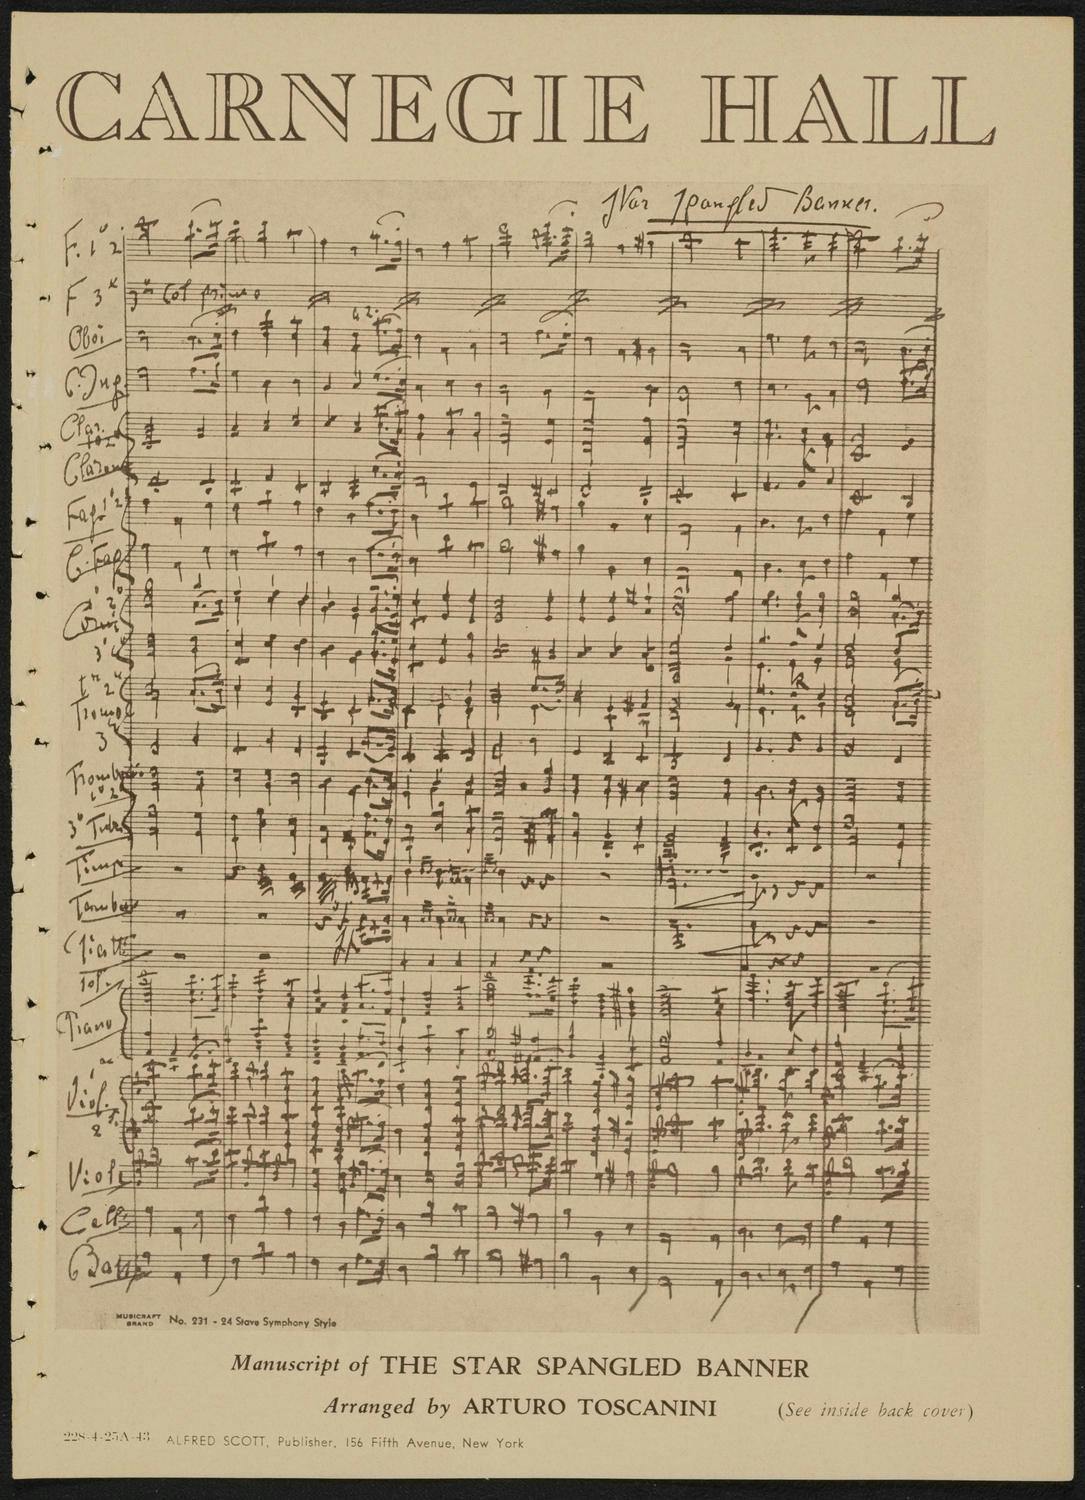 CARNEGIE HALL
Star Spangled Banner.
F. 1º 2
F 3º
3º Col primo
Oboi
C. Ing.
Clar.
Fag. 1º 2º
C. Fag.
3º
2º
3
3º Tuba
Timp
Piatti
Piano
Viol.
2
Viole
Celli
Bassi
MUSICRAFT BRAND No. 231 - 24 Stave Symphony Style
Manuscript of THE STAR SPANGLED BANNER
Arranged by ARTURO TOSCANINI (See inside back cover)
228-4-25A-43 ALFRED SCOTT, Publisher, 156 Fifth Avenue, New York